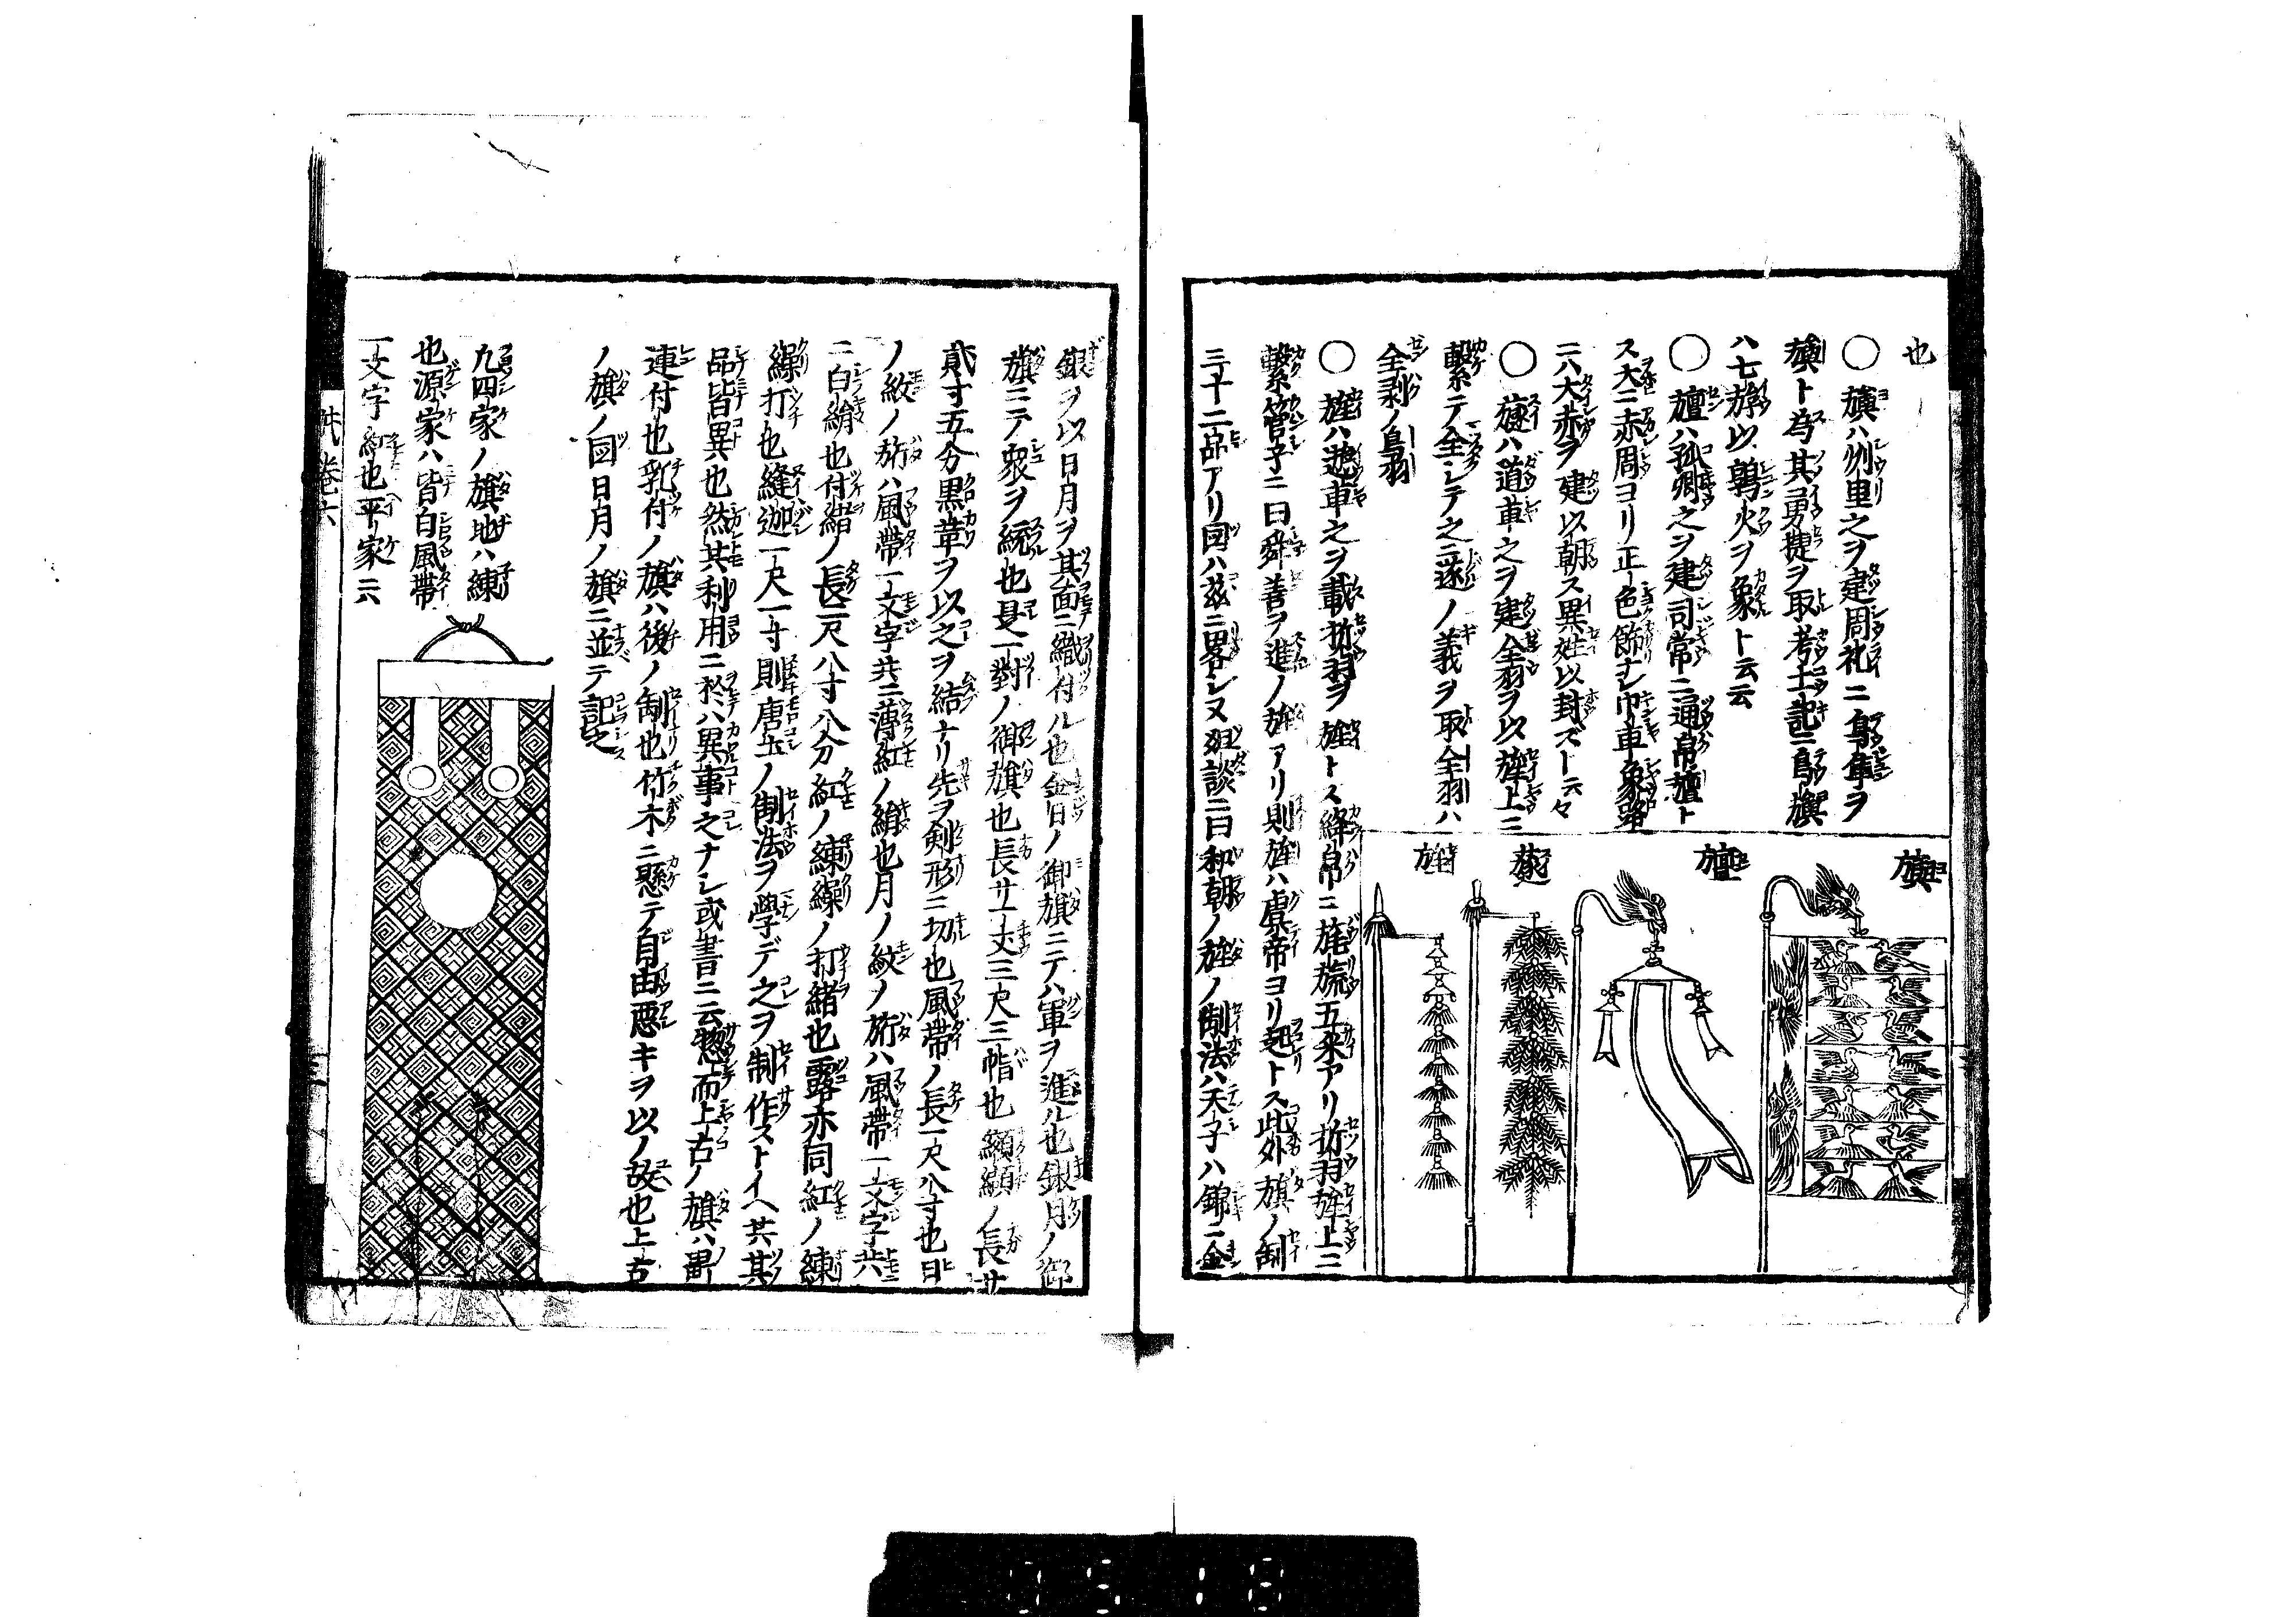 也
〇旟ハ州里之ヲ建周礼ニ鳥隼ヲ
旟ト為其勇捷ヲ取考工記ニ鳥旟
八七斿以鶉火ヲ象ト云云
〇旜ハ孤卿之ヲ建司常ニ通帛旜ト
ス大ニ赤周ヨリ正色飾ナシ巾車象路
ニハ大赤ヲ建以朝ス異姓以封ズト云々
〇旞ハ道車之ヲ建全羽ヲ以旞上ニ
繋テ全シテ之ニ遂ノ義ヲ取全羽ハ
全剥ノ鳥羽
〇旌ハ遊車之ヲ載析羽ヲ旌トス絳帛ニ旄旒五采アリ析羽旌上ニ
繋管子ニ曰舜善ヲ進ノ旌アリ則旌ハ虞帝ヨリ起トス此外旗ノ制
三十二品アリ図ハ茲ニ畧シヌ 談ニ曰和朝ノ旌ノ制法ハ天子ハ錦ニ金
旟
旜
旞
旌
銀ヲ以日月ヲ其面ニ織付ル也金日ノ御旗ニテハ軍ヲ進ル也銀月ノ御
旗ニテ衆ヲ統也是一對ノ御旗也長サ一丈三尺三幅也 ノ長サ
貳寸五分黒韋ヲ以之ヲ結ナリ先ヲ剣形ニ切也風帶ノ長一尺八寸也日
ノ紋ノ旂ハ風帶一文字共ニ薄紅ノ絹也月ノ紋ノ旂ハ風帶一文字共
ニ白絹也付緒ノ長二尺八寸八分紅ノ練繰ノ打緒也露亦同紅ノ練
繰打也縫迦一尺一寸則唐土ノ制法ヲ學デ之ヲ制作ストイヘ共其
品皆異也然其利用ニ於ハ異事之ナシ或書ニ云惣而上古ノ旗ハ畧
連付也乳付ノ旗ハ後ノ制也竹木ニ懸テ自由悪キヲ以ノ故也上古
ノ旗ノ図日月ノ旗ニ並テ記之
凡四家ノ旗地ハ練
也源家ハ皆白風帶
一文字紅也平家ニハ
巻六